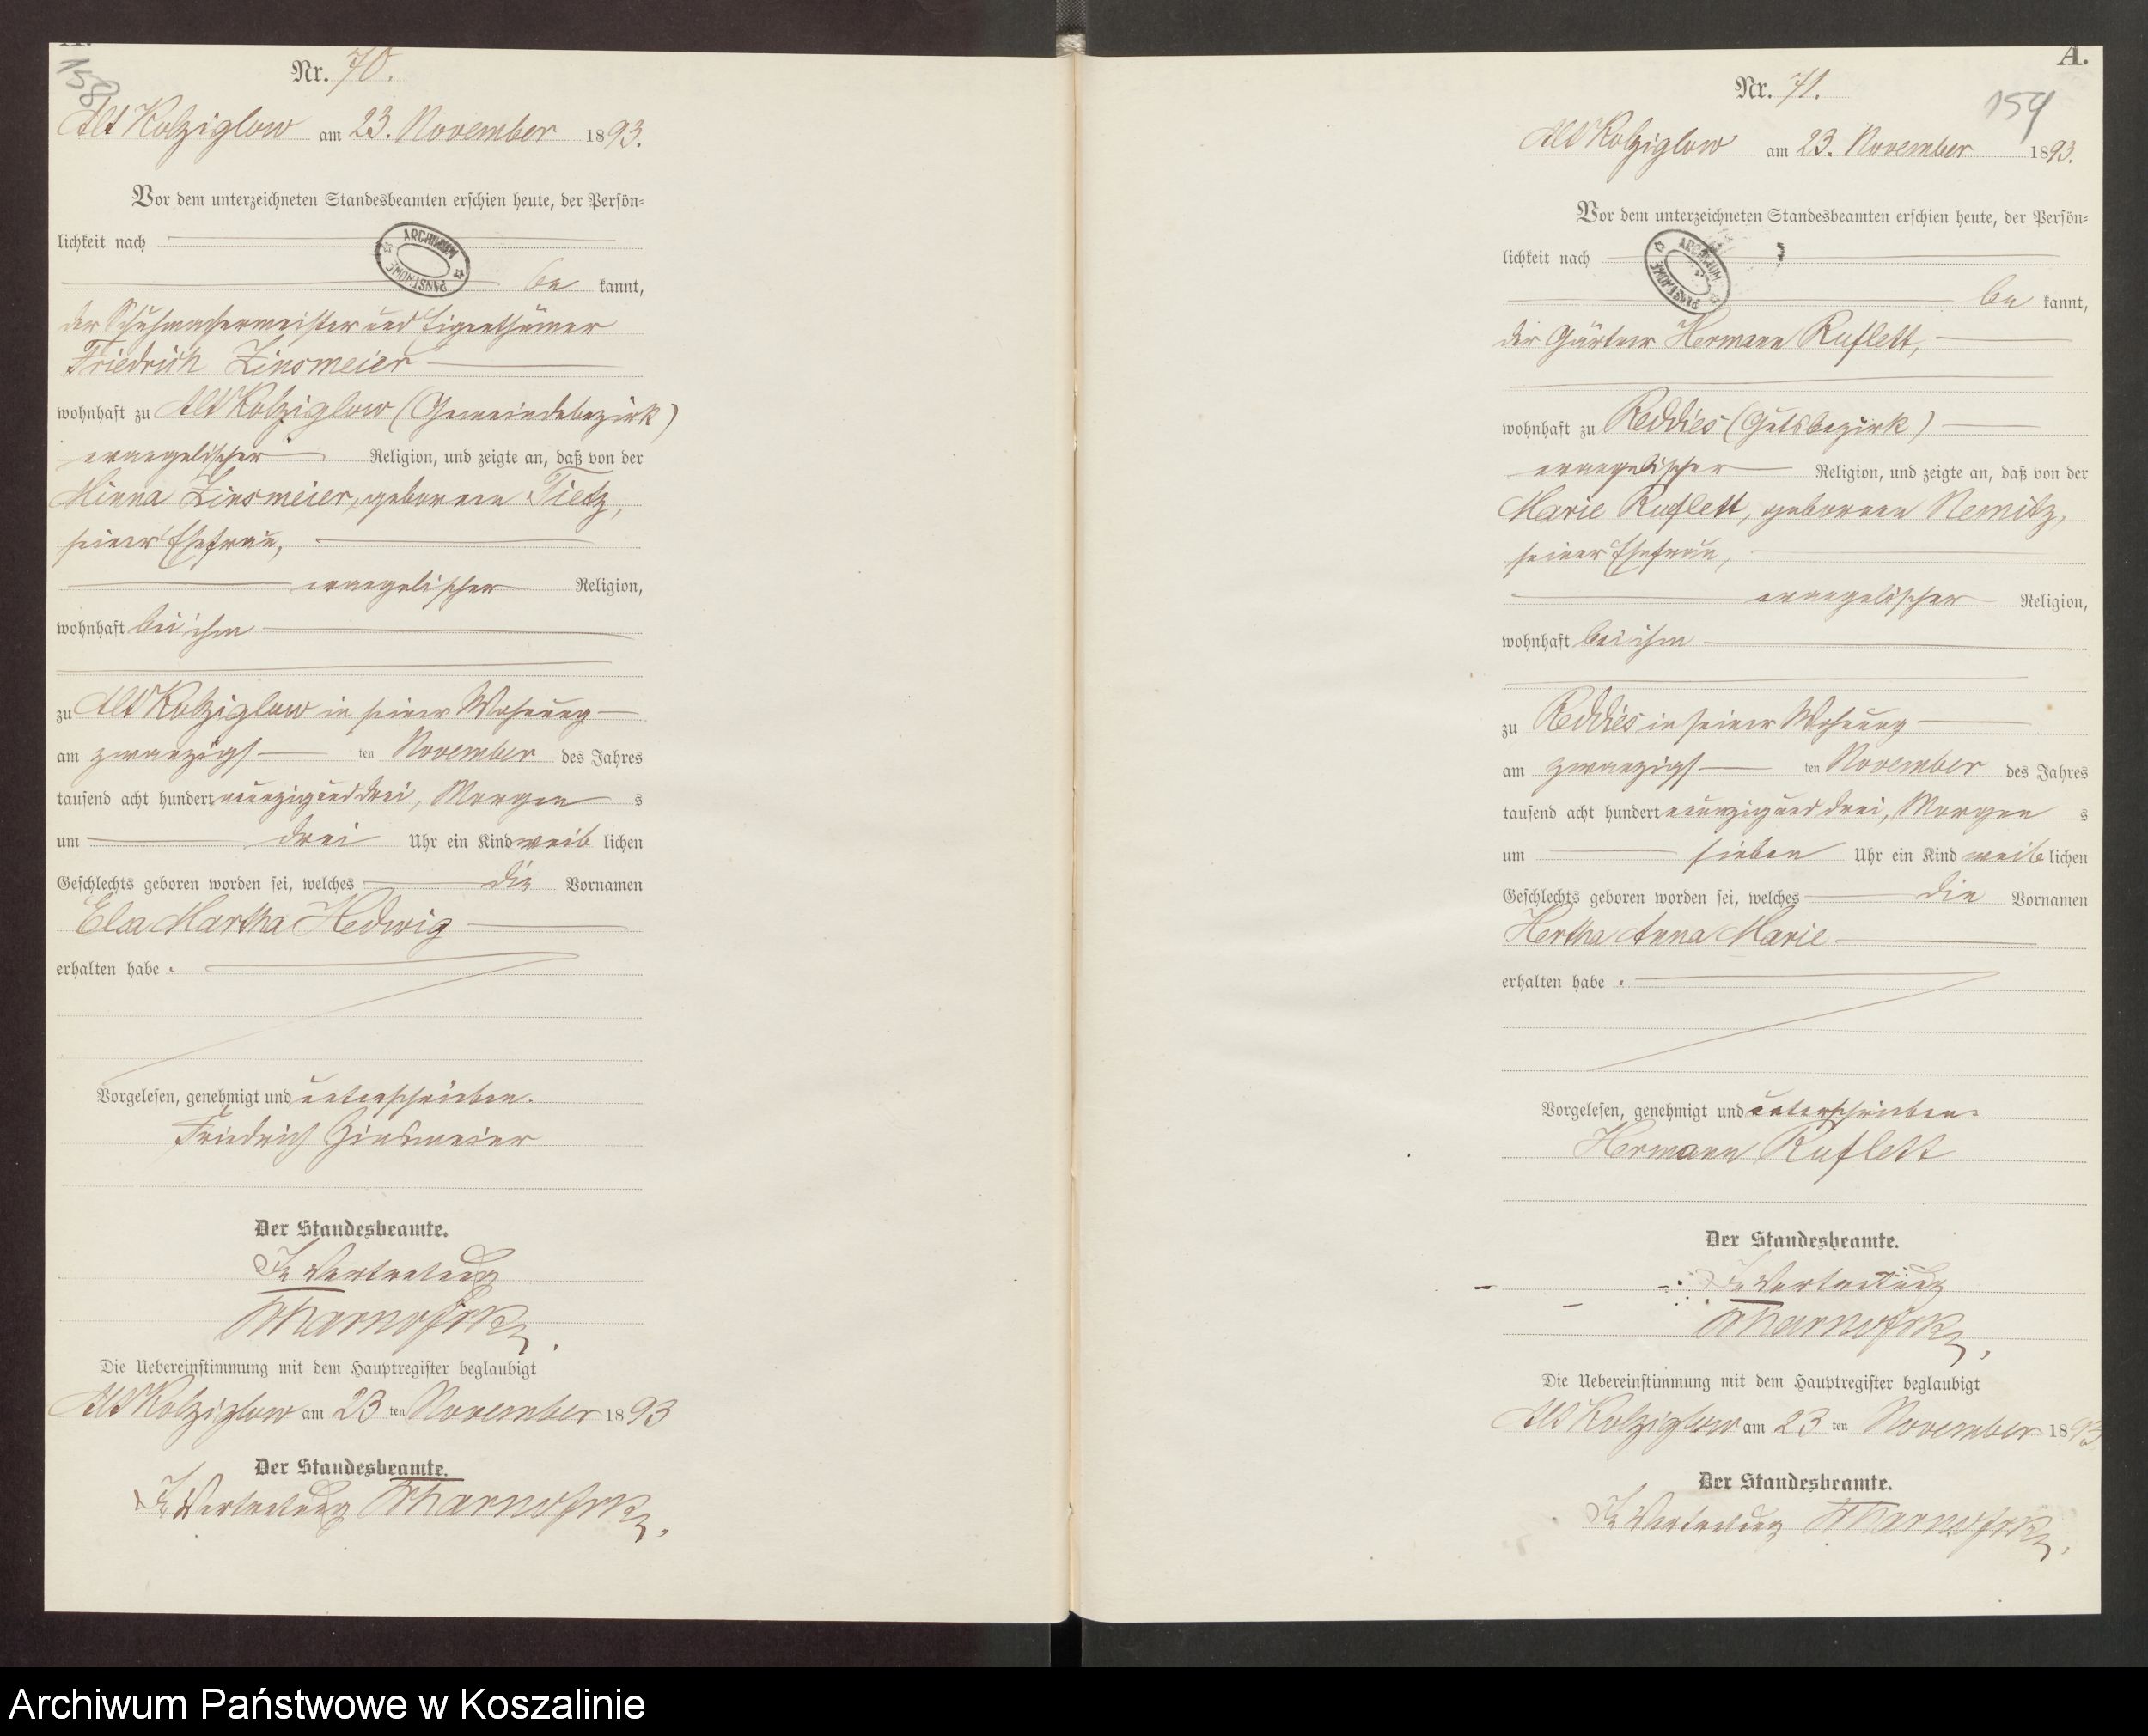 158
Nr. 70.
Alt Kolziglow am 23. November 1893.
Vor dem unterzeichneten Standesbeamten erschien heute, der Persön-
lichkeit nach
ARCHIWUM PAŃSTWOWE
be kannt,
der Schuhmachermeister und Eigenthümer
Friedrich Zinsmeier
wohnhaft zu Alt Kolziglow (Gemeindebezirk)
evangelischer Religion, und zeigte an, daß von der
Minna Zinsmeier, geborenen Tietz,
seiner Ehefrau,
evangelischer Religion,
wohnhaft bei ihm
zu Alt Kolziglow in seiner Wohnung
am zwanzigs ten November des Jahres
tausend acht hundert neunzig und drei, Morgen s
um drei Uhr ein Kind weib lichen
Geschlechts geboren worden sei, welches die Vornamen
Martha Hedwig
erhalten habe.
Vorgelesen, genehmigt und unterschrieben.
Friedrich Zinsmeier
Der Standesbeamte.
In Vertretung
Die Uebereinstimmung mit dem Hauptregister beglaubigt
Alt Kolziglow am 23 ten November 1893
Der Standesbeamte.
In Vertretung
A.
Nr. 71.
159
Alt Kolziglow am 23. November 1893.
Vor dem unterzeichneten Standesbeamten erschien heute, der Persön-
lichkeit nach
ARCHIWUM PAŃSTWOWE
be kannt,
der Gärtner Hermann Ruflett,
wohnhaft zu Reddies (Gutsbezirk)
evangelischer Religion, und zeigte an, daß von der
Marie Ruflett, geborenen Nemitz,
seiner Ehefrau,
evangelischer Religion,
wohnhaft bei ihm
zu Reddies in seiner Wohnung
am zwanzigs ten November des Jahres
tausend acht hundert neunzig und drei, Morgen s
um sieben Uhr ein Kind weib lichen
Geschlechts geboren worden sei, welches die Vornamen
Hertha Anna Marie
erhalten habe.
Vorgelesen, genehmigt und unterschrieben.
Hermann Ruflett
Der Standesbeamte.
In Vertretung
Die Uebereinstimmung mit dem Hauptregister beglaubigt
Alt Kolziglow am 23 ten November 1893
Der Standesbeamte.
In Vertretung
Archiwum Państwowe w Koszalinie